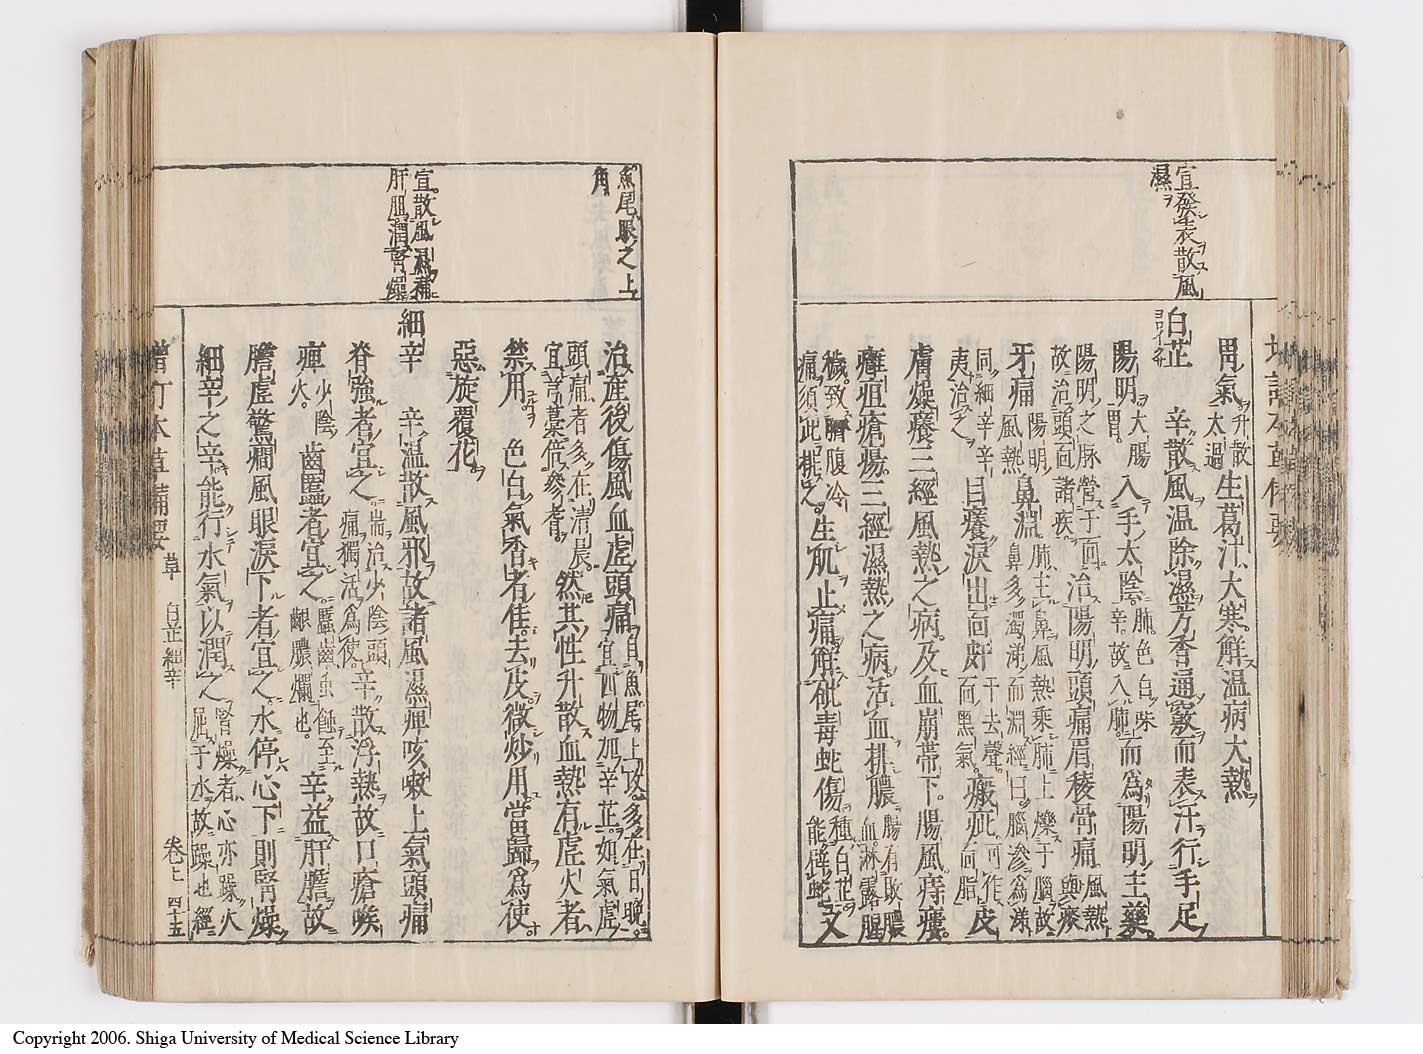 宣發表散風
濕
胃氣升散太過生葛汁大寒解温病大熱
白芷 辛散風温除濕芳香通竅而表汗行手足
陽明大腸胃入手太陰肺色白味辛故入肺而爲陽明主藥
陽明之脉營于面故治頭面諸疾治陽明頭痛眉稜骨痛風熱與痰
牙痛陽明風熱鼻淵肺主鼻風熱乘肺上爍于腦故鼻多濁涕而淵經曰腦滲爲涕
同細辛辛夷治之目癢淚出面皯干去聲面黑氣瘢疵可作面脂皮
膚燥癢三經風熱之病及血崩帶下腸風痔瘻
癰疽瘡瘍三經濕熱之病活血排膿腸有敗膿血淋露腥
穢致臍腹冷痛須此排之生肌止痛解砒毒蛇傷種白芷能辟蛇又
魚尾眼之上
角
治產後傷風血虛頭痛自魚尾上攻多在日晚宜四物加辛芷如氣虛
頭痛者多在清晨宜芎藁倍參耆然其性升散血熱有虛火者
禁用 色白氣香者佳去皮微炒用當歸爲使
惡旋覆花
宣散風濕補
肝胆潤腎燥
細辛 辛温散風邪故諸風濕痺咳嗽上氣頭痛
脊強者宜之耑治少陰頭痛獨活爲使辛散浮熱故口瘡喉
痺少陰火齒䘌者宜之䘌齒虫蝕至齦膿爛也辛益肝膽故
膽虛驚癎風眼淚下者宜之水停心下則腎燥
細辛之辛能行水氣以潤之腎燥者心亦躁火屈于水故躁也經
增訂本草備要 草 白芷細辛 卷上 四十五
Copyright 2006. Shiga University of Medical Science Library